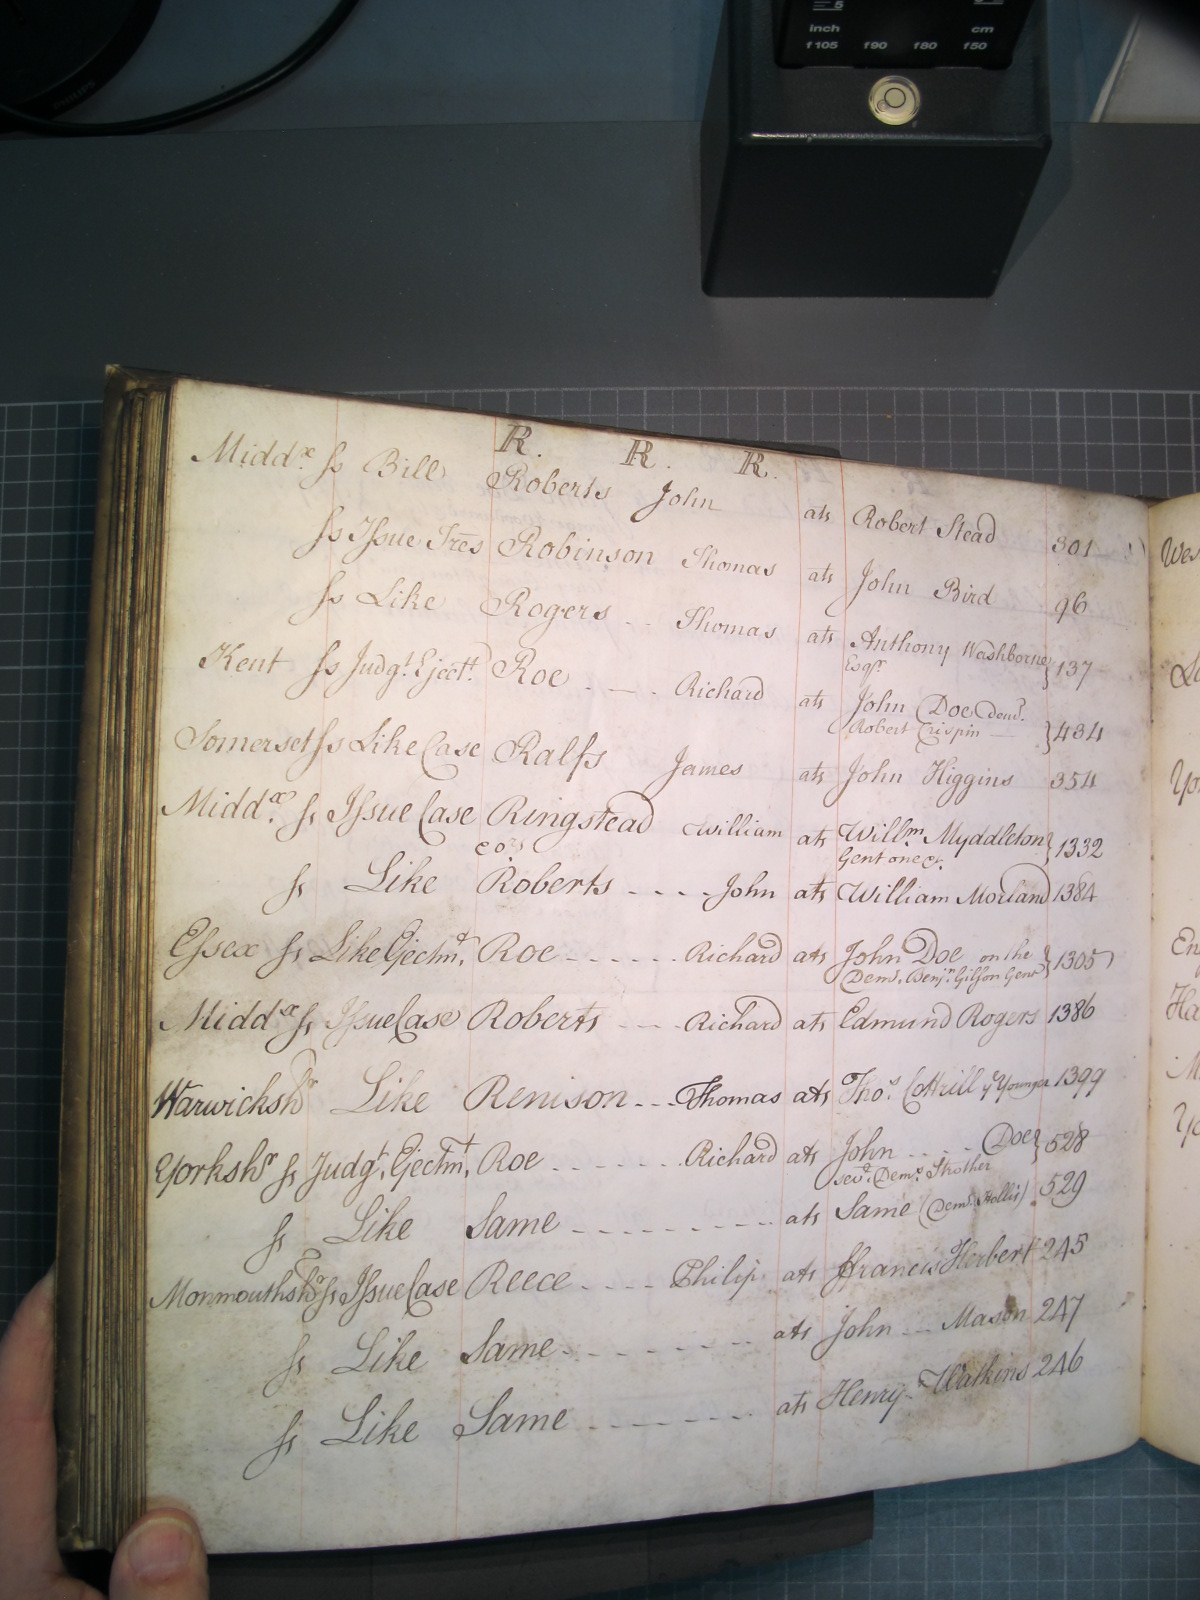 5
inch cm
f105 f90 f80 f50
PHILIPS
R. R. R.
Middx. ss Bill Roberts John ats Robert Stead 301
ss Issue Tres Robinson Thomas ats John Bird 96
ss Like Rogers Thomas ats Anthony Washborne
Esqr. } 137
Kent ss Judgt. Ejectt. Roe Richard ats John Doe Demr.
Robert Crispin } 434
Somerset ss Like Case Ralfs James ats John Higgins 354
Middx. ss Issue Case Ringstead William ats Willm. Myddleton
Gent one &c. } 1332
ss Like Roberts John ats William Morland 1384
Essex ss Like Ejectmt. Roe Richard ats John Doe on the
Dems. Benjn. Gilson Gent } 1305
Middx ss Issue Case Roberts Richard ats Edmund Rogers 1386
Warwickshr Like Renison Thomas ats Thos. Cottrill ye Younger 1399
Yorkshr ss Judgt. Ejectmt. Roe Richard ats John Doe } 528
sevl. Dems. Strother
ss Like Same ats Same (Dems. Hollis) 529
Monmouthshr ss Issue Case Reece Philip ats Francis Herbert 245
ss Like Same ats John Mason 247
ss Like Same ats Henry Watkins 246